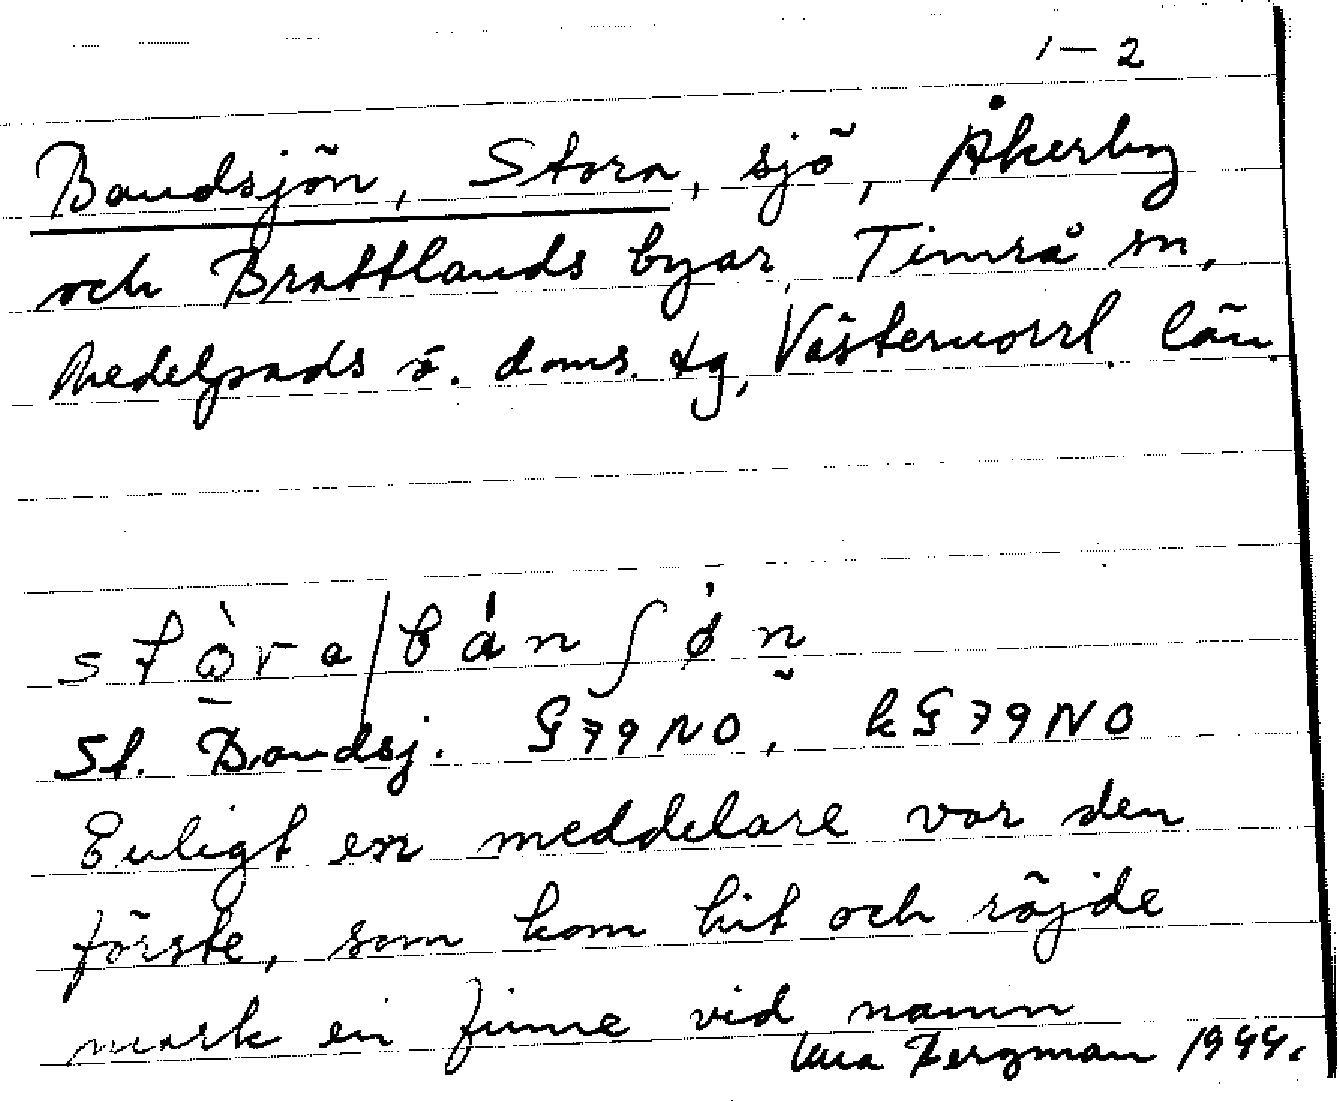 1–2
Bandsjön, Stora, sjö, Åkerby
och Brattlands byar, Timrå sn,
Medelpads ö. doms. tg, Västernorrl. län.
stò̱ra/bánʃøn
St. Bandsj. G79NO, kG79NO
Enligt en meddelare var den
förste, som kom hit och röjde
mark en finne vid namn
Bergman 1944.